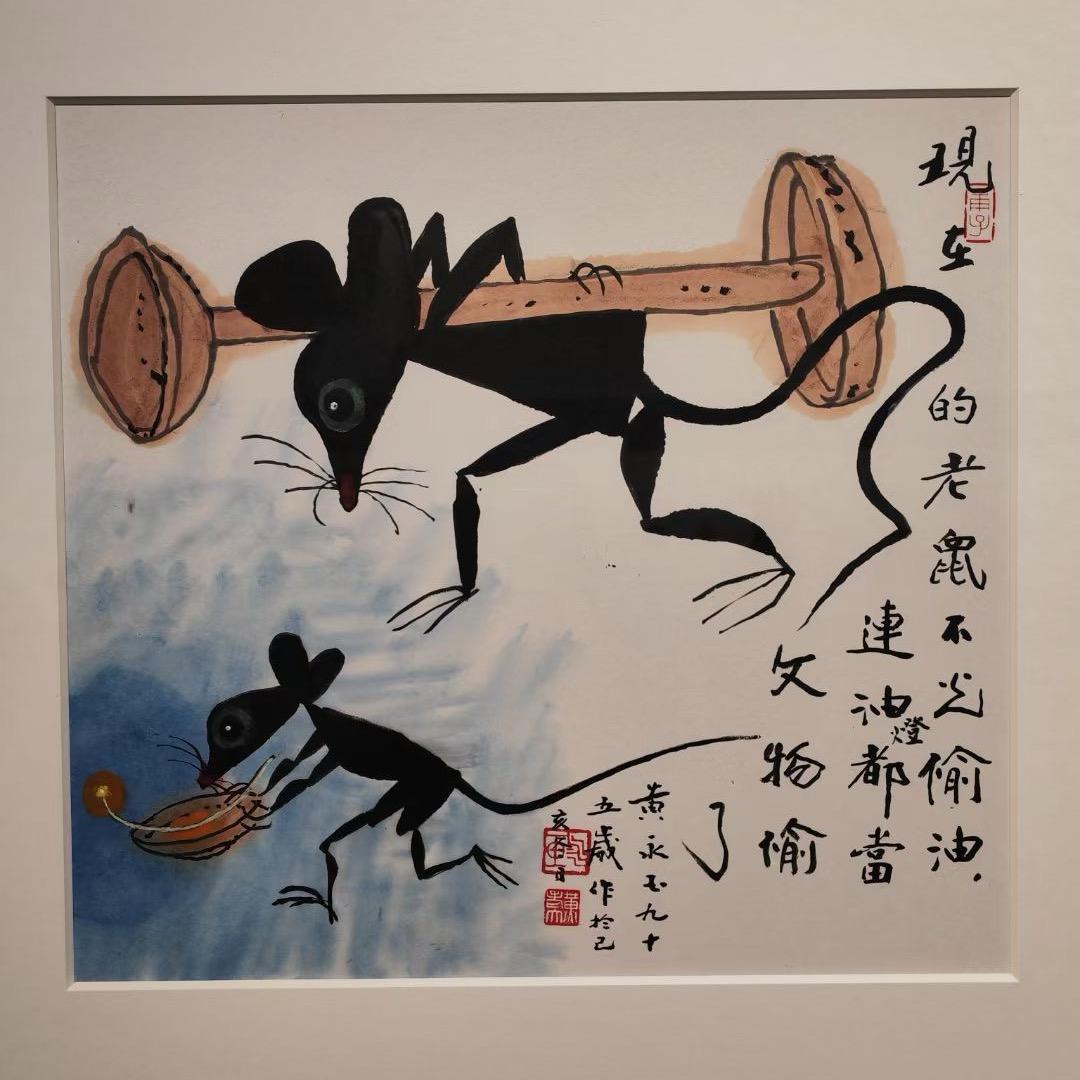 現在的老鼠不光偷油，
連油燈都當
文物偷
了
黃永玉九十
五歲作於己
亥春日
庚子